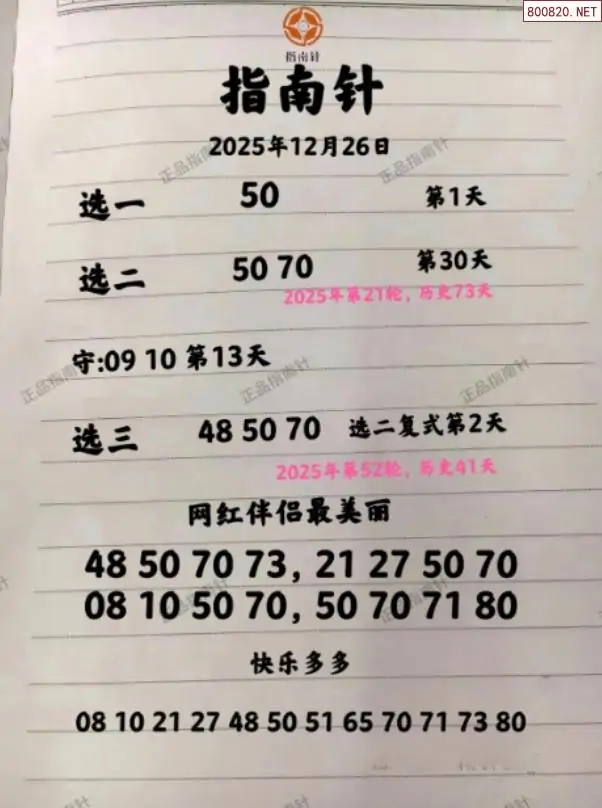 800820.NET
指南针
指南针
2025年12月26日
正品指南针 正品指南针
选一 50 第1天
选二 50 70 第30天
2025年第21轮,历史73天
守:09 10 第13天
正品指南针 正品指南针 正品指南针
选三 48 50 70 选二复式第2天
2025年第52轮,历史41天
网红伴侣最美丽
48 50 70 73, 21 27 50 70
08 10 50 70, 50 70 71 80
正品指南针 正品指南针
快乐多多
08 10 21 27 48 50 51 65 70 71 73 80